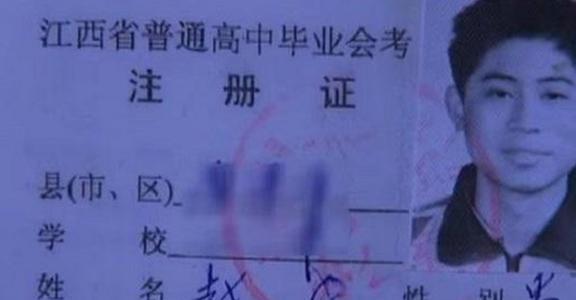 江西省普通高中毕业会考
注册证
县(市、区)
学校
姓名 赵 C 性别 男